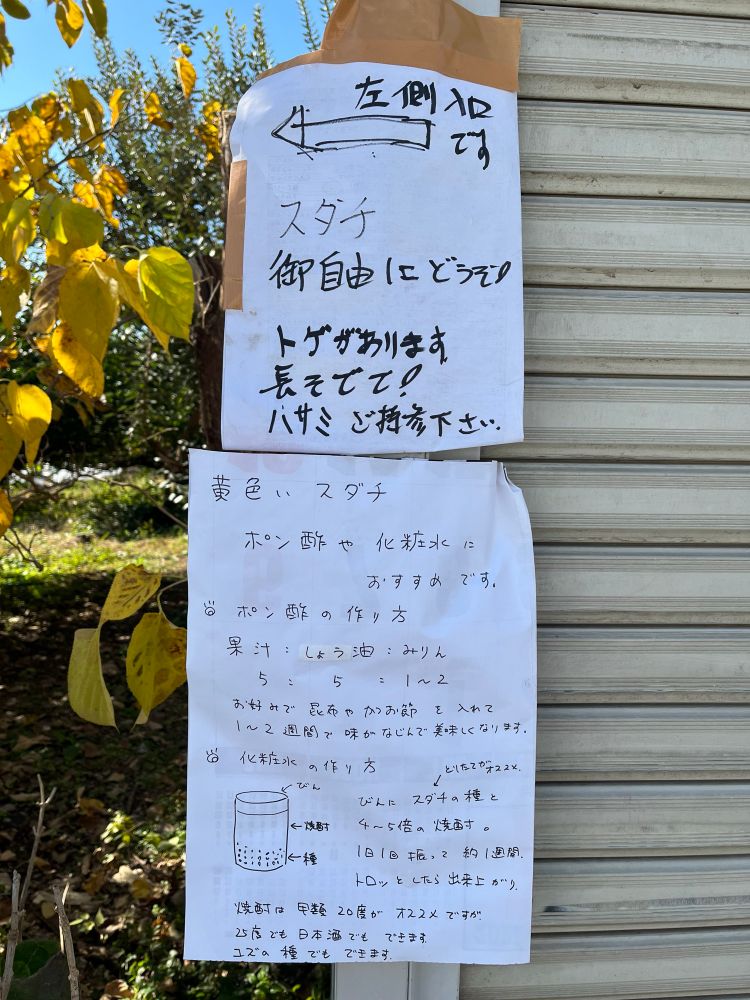 左側入口
です
スダチ
御自由にどうぞ!
トゲがあります
長そでで!
ハサミご持参下さい.
黄色いスダチ
ポン酢や化粧水に
おすすめです。
ポン酢の作り方
果汁:しょう油:みりん
5:5:1~2
お好みで昆布やかつお節を入れて
1~2週間で味がなじんで美味しくなります.
化粧水の作り方
とりたてがオススメ.
びん
焼酎
種
びんにスダチの種と
4~5倍の焼酎。
1日1回振って約1週間.
トロッとしたら出来上がり.
焼酎は甲類20度がオススメですが
25度でも日本酒でもできます.
ユズの種でもできます.